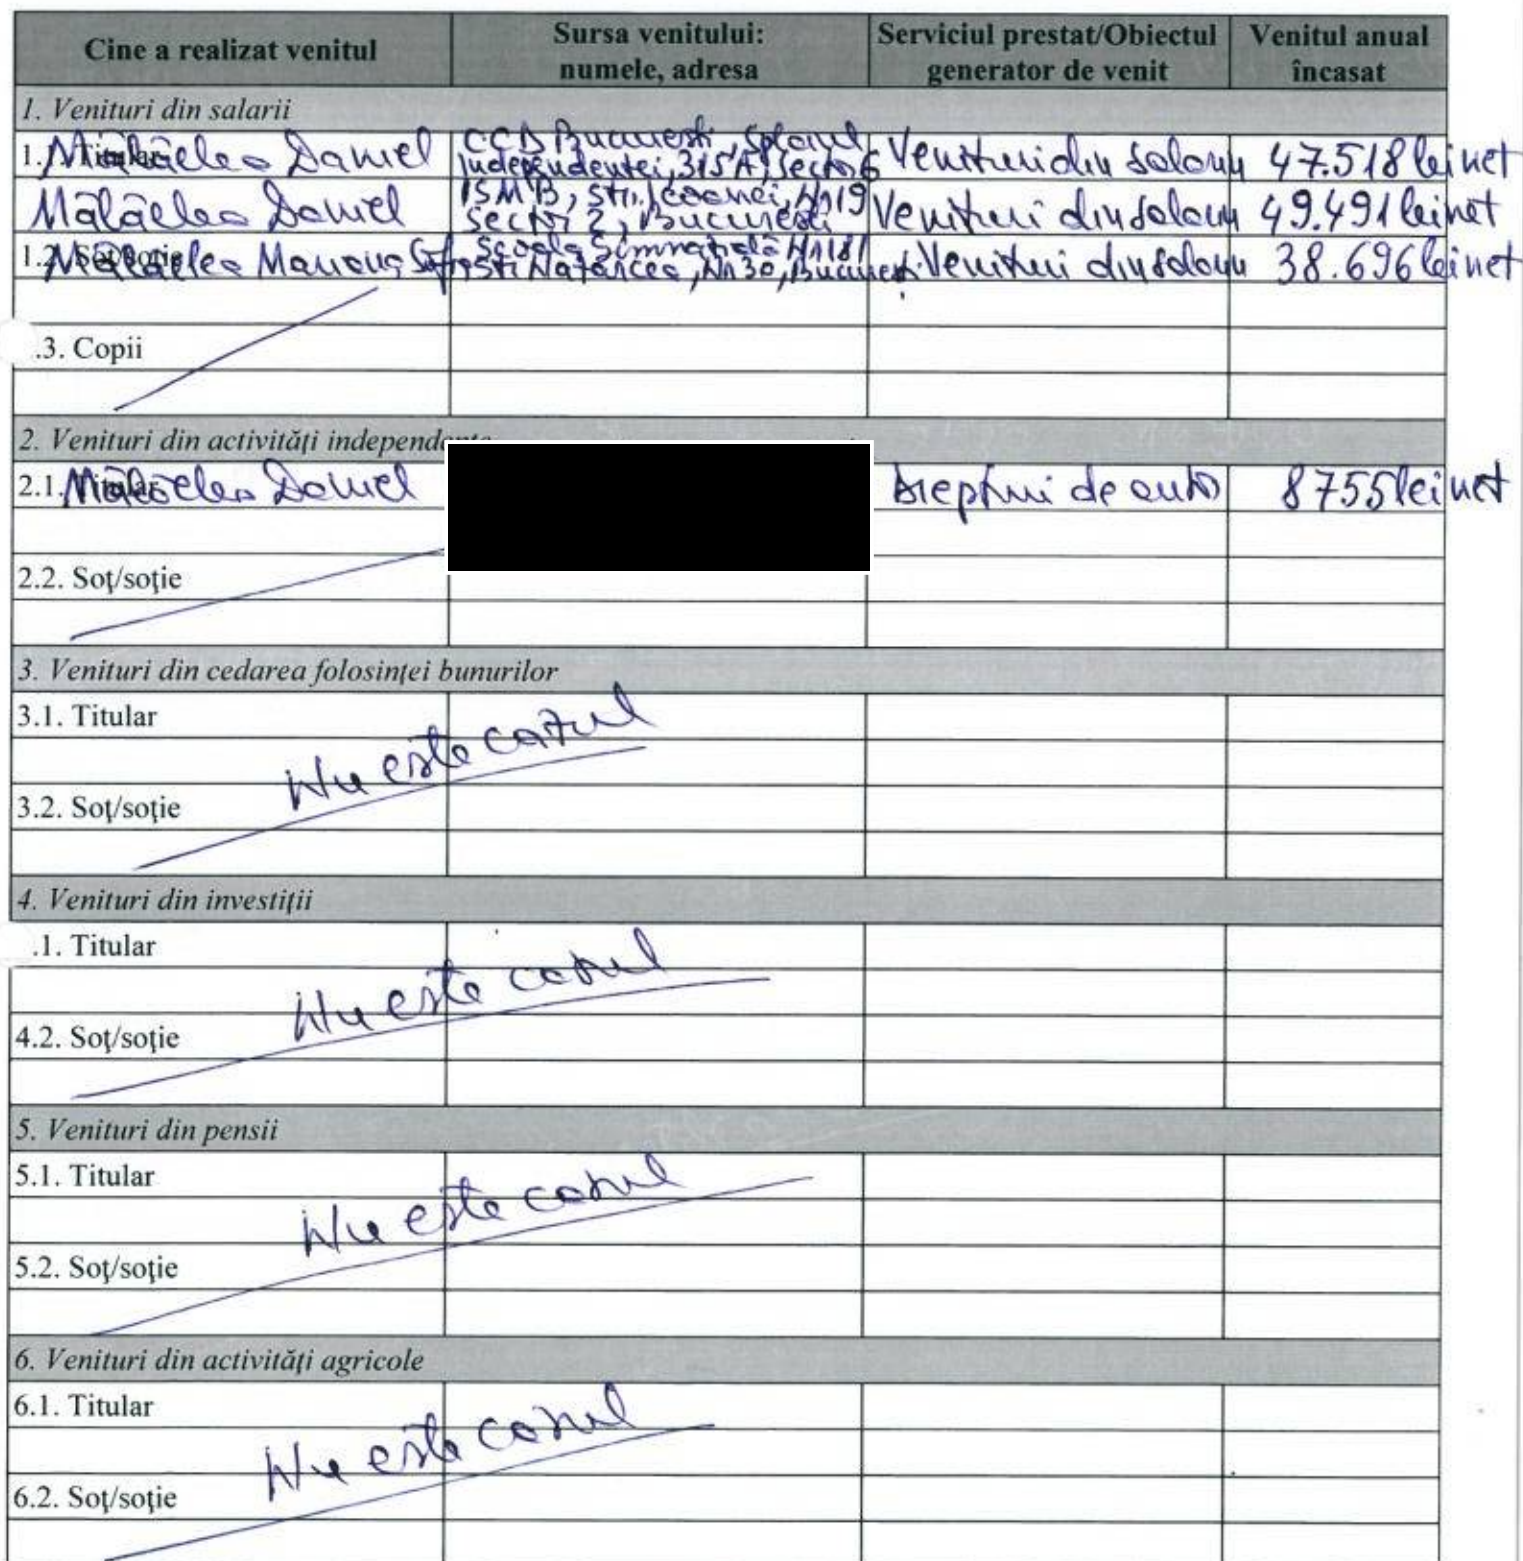 Cine a realizat venitul Sursa venitului: numele, adresa Serviciul prestat/Obiectul generator de venit Venitul anual încasat
1. Venituri din salarii
1.1. Titular Mălăelea Daniel CCD București, Splaiul Independenței, 315A, Sector 6 Venituri din salariu 47.518 lei net
Mălăelea Daniel ISMB, Str. Icoanei, Nr 19 Sector 2, București Venituri din salariu 49.491 lei net
1.2. Soț/soție Mălăelea Mariana Școala Gimnazială Nr 181 Venituri din salariu 38.696 lei net
.3. Copii
2. Venituri din activităţi independente
2.1. Titular Mălăelea Daniel Drepturi de autor 8755 lei net
2.2. Soţ/soţie
3. Venituri din cedarea folosinţei bunurilor
3.1. Titular
Nu este cazul
3.2. Soţ/soţie
4. Venituri din investiţii
.1. Titular
Nu este cazul
4.2. Soţ/soţie
5. Venituri din pensii
5.1. Titular
Nu este cazul
5.2. Soţ/soţie
6. Venituri din activităţi agricole
6.1. Titular
Nu este cazul
6.2. Soţ/soţie